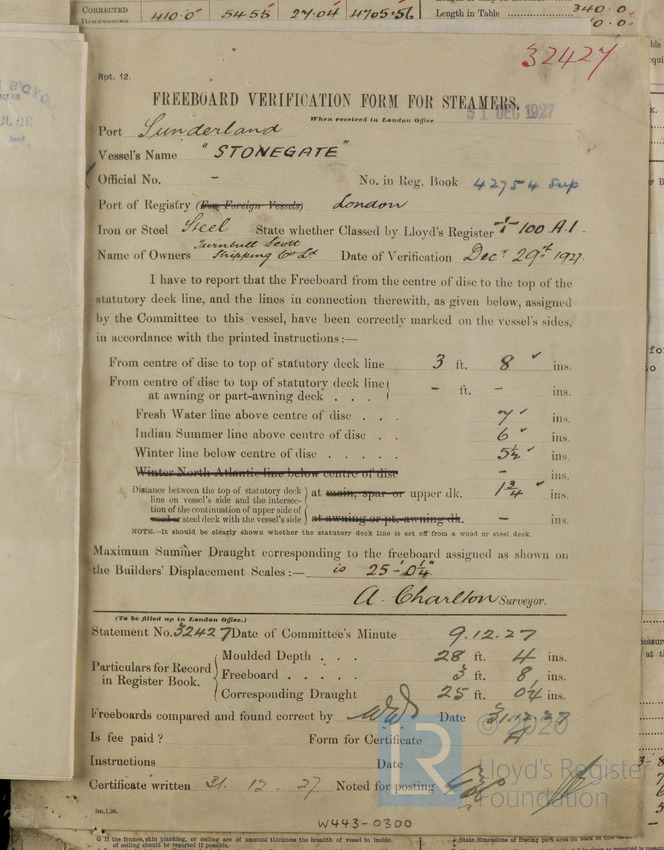 CORRECTED DIMENSIONS 410.0 54.55 27.04 4705.56
Length in Table 340.0
32427
Rpt. 12.
FREEBOARD VERIFICATION FORM FOR STEAMERS.
When received in London Office 31 DEC 1927
Port Sunderland
Vessel's Name "STONEGATE"
Official No. - No. in Reg. Book 42754 Sup
Port of Registry (For Foreign Vessels) London
Iron or Steel Steel State whether Classed by Lloyd's Register 100 A.1.
Name of Owners Turnbull Scott Shipping Co Ld Date of Verification Decr 29th 1927.
I have to report that the Freeboard from the centre of disc to the top of the
statutory deck line, and the lines in connection therewith, as given below, assigned
by the Committee to this vessel, have been correctly marked on the vessel's sides,
in accordance with the printed instructions:—
From centre of disc to top of statutory deck line 3 ft. 8 ins.
From centre of disc to top of statutory deck line
at awning or part-awning deck . . . - ft. - ins.
Fresh Water line above centre of disc . . . 7 ins.
Indian Summer line above centre of disc . . 6 ins.
Winter line below centre of disc . . . . . 5½ ins.
Winter North Atlantic line below centre of disc - ins.
Distance between the top of statutory deck
line on vessel's side and the intersec-
tion of the continuation of upper side of
wood or steel deck with the vessel's side
at main, spar or upper dk. 1¾ ins.
at awning or pt.-awning dk. - ins.
NOTE.—It should be clearly shown whether the statutory deck line is set off from a wood or steel deck.
Maximum Summer Draught corresponding to the freeboard assigned as shown on
the Builders' Displacement Scales:— is 25'-0¼".
A. Charlton Surveyor.
(To be filled up in London Office.)
Statement No. 32427 Date of Committee's Minute 9.12.27
Particulars for Record in Register Book.
Moulded Depth . . . 28 ft. 4 ins.
Freeboard . . . . . 3 ft. 8 ins.
Corresponding Draught 25 ft. 0¼ ins.
Freeboards compared and found correct by Date 31.12.27
Is fee paid? Form for Certificate A
Instructions Date
Certificate written 31. 12. 27. Noted for posting
2m,1,26.
W443-0300
© 2020
LR
Lloyd's Register
Foundation
If the frames, skin planking, or ceiling are of unusual thickness the breadth of vessel to inside
of ceiling should be reported if possible.
† State dimensions of freeing port area on back of this